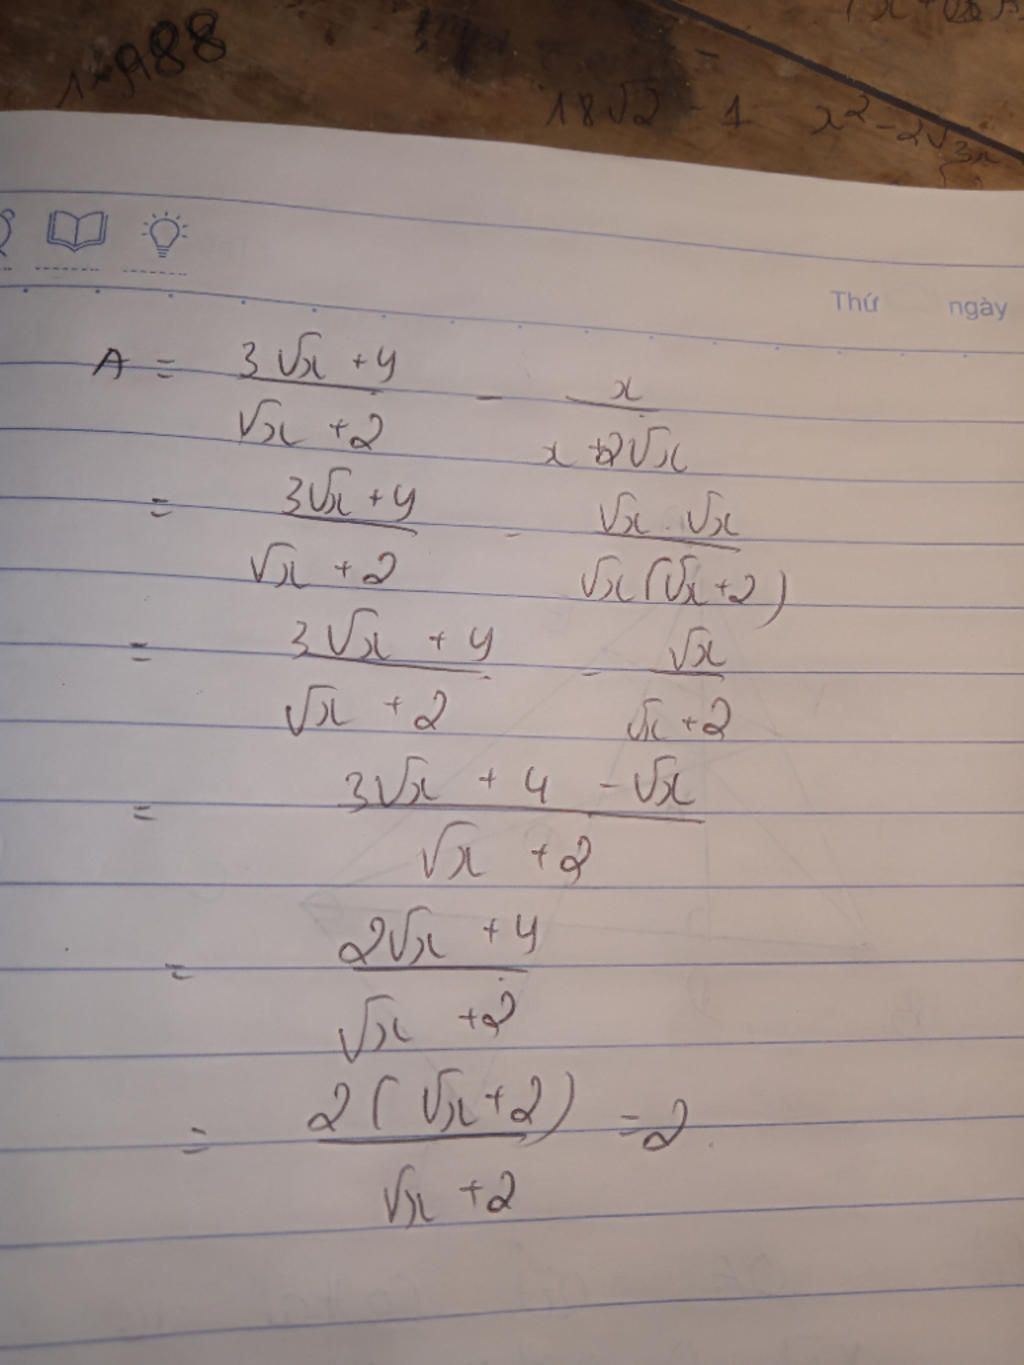 1 988
18√2 - 1 x² - 2√3x
Thứ ngày
A = (3√x + 4)/(√x + 2) - x/(x + 2√x)
= (3√x + 4)/(√x + 2) - (√x . √x)/(√x(√x + 2))
= (3√x + 4)/(√x + 2) - √x/(√x + 2)
= (3√x + 4 - √x)/(√x + 2)
= (2√x + 4)/(√x + 2)
= 2(√x + 2)/(√x + 2) = 2.